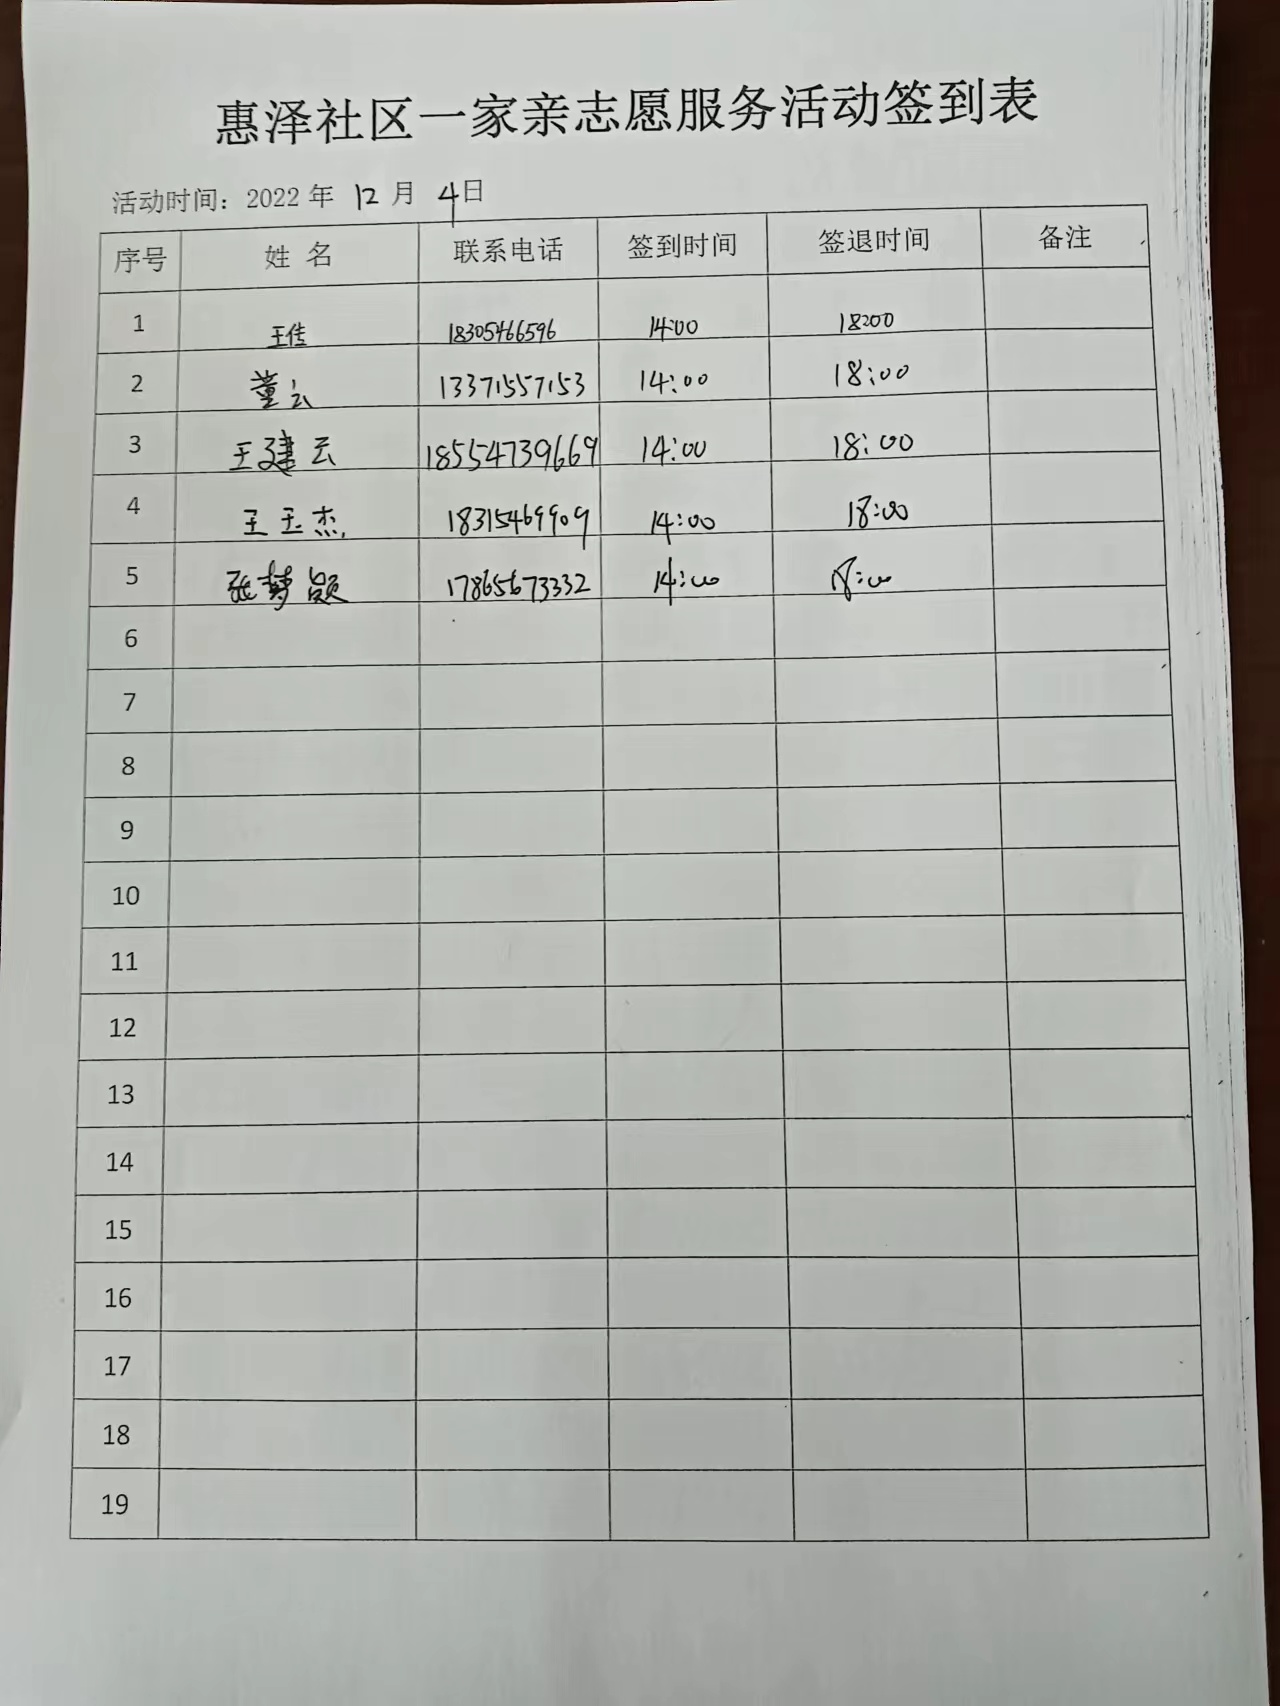 惠泽社区一家亲志愿服务活动签到表
活动时间：2022 年 12 月 4日
序号 姓 名 联系电话 签到时间 签退时间 备注
1 王佳 18305466596 14:00 18:00
2 董云 13371557153 14:00 18:00
3 王建云 18554739669 14:00 18:00
4 王玉杰 18315469909 14:00 18:00
5 张梦颖 17865673332 14:00 18:00
6
7
8
9
10
11
12
13
14
15
16
17
18
19